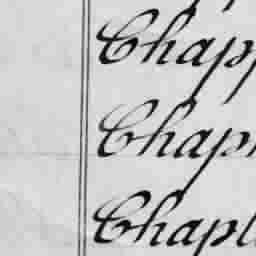 Chapp
Chaph
Chapl